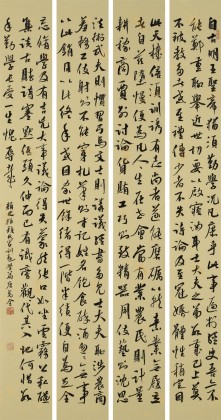 自古明王聖帝猶須勤學況凡庶乎此事遍於經史吾亦不
能鄭重聊舉近世切要以啟寤汝耳士大夫子弟數歲已上莫
不被教多者或至禮傳少者不失詩論及至冠婚體性稍定因
此天機倍須訓誘有志尚者遂能磨礪以就素業無履立
者自茲墮慢便為凡人人生在世會當有業農民則計量
耕稼商賈則討論貨賄工巧則致精器用伎藝則沈思
法術武夫則慣習弓馬文士則講議經書多見士大夫恥涉農商
羞務工伎射則不能穿札筆則才記姓名飽食醉酒忽忽無事
以此銷日以此終年或因家世餘緒得一階半級便自為足全
忘修學及有吉凶大事議論得失蒙然張口如坐雲霧公私宴
集談古賦詩塞默低頭欠伸而已有識旁觀代其入地何惜數
年勤學長受一生愧辱哉
顏氏家訓勉學篇